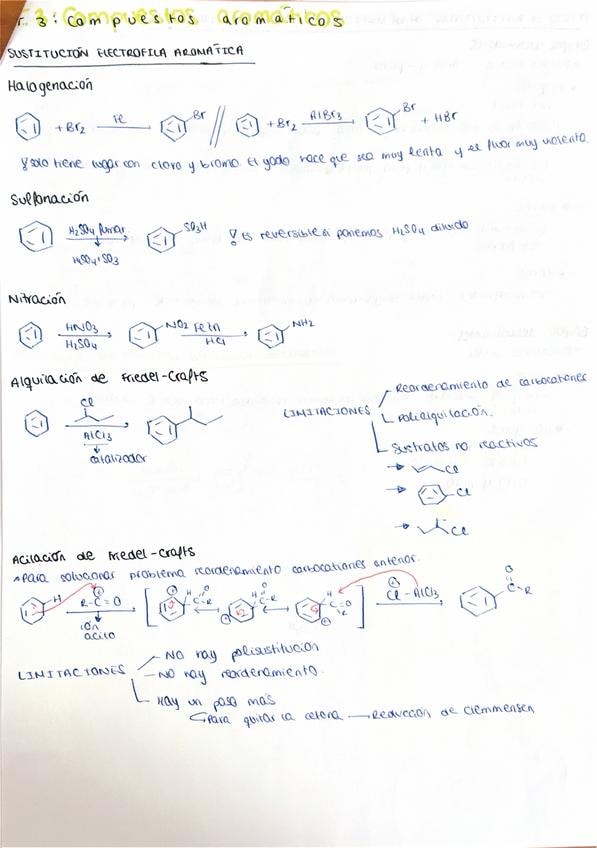 T. 3: Compuestos aromáticos
SUSTITUCIÓN ELECTROFILA AROMÁTICA
Halogenación
+ Br2 Fe Br // + Br2 AlBr3 Br + HBr
solo tiene lugar con cloro y bromo. El yodo hace que sea muy lenta y el fluor muy violenta.
Sulfonación
H2SO4 fumar. SO3H ! Es reversible si ponemos H2SO4 diluido
H2SO4 + SO3
Nitración
HNO3 NO2 Fe Zn NH2
H2SO4 HCl
Alquilación de Friedel-Crafts
Cl
AlCl3
catalizador
LIMITACIONES
Reordenamiento de carbocationes
Polialquilación.
Sustratos no reactivos
Cl
Cl
Cl
Acilación de Friedel-Crafts
Para solucionar problema reordenamiento carbocationes anterior.
H R-C=O H C O R H C O R H C=O R Cl - AlCl3 O C R
ion
acilo
LIMITACIONES
NO hay polisustitución
NO hay reordenamiento.
Hay un paso más
Para quitar la cetona → Reducción de Clemmensen